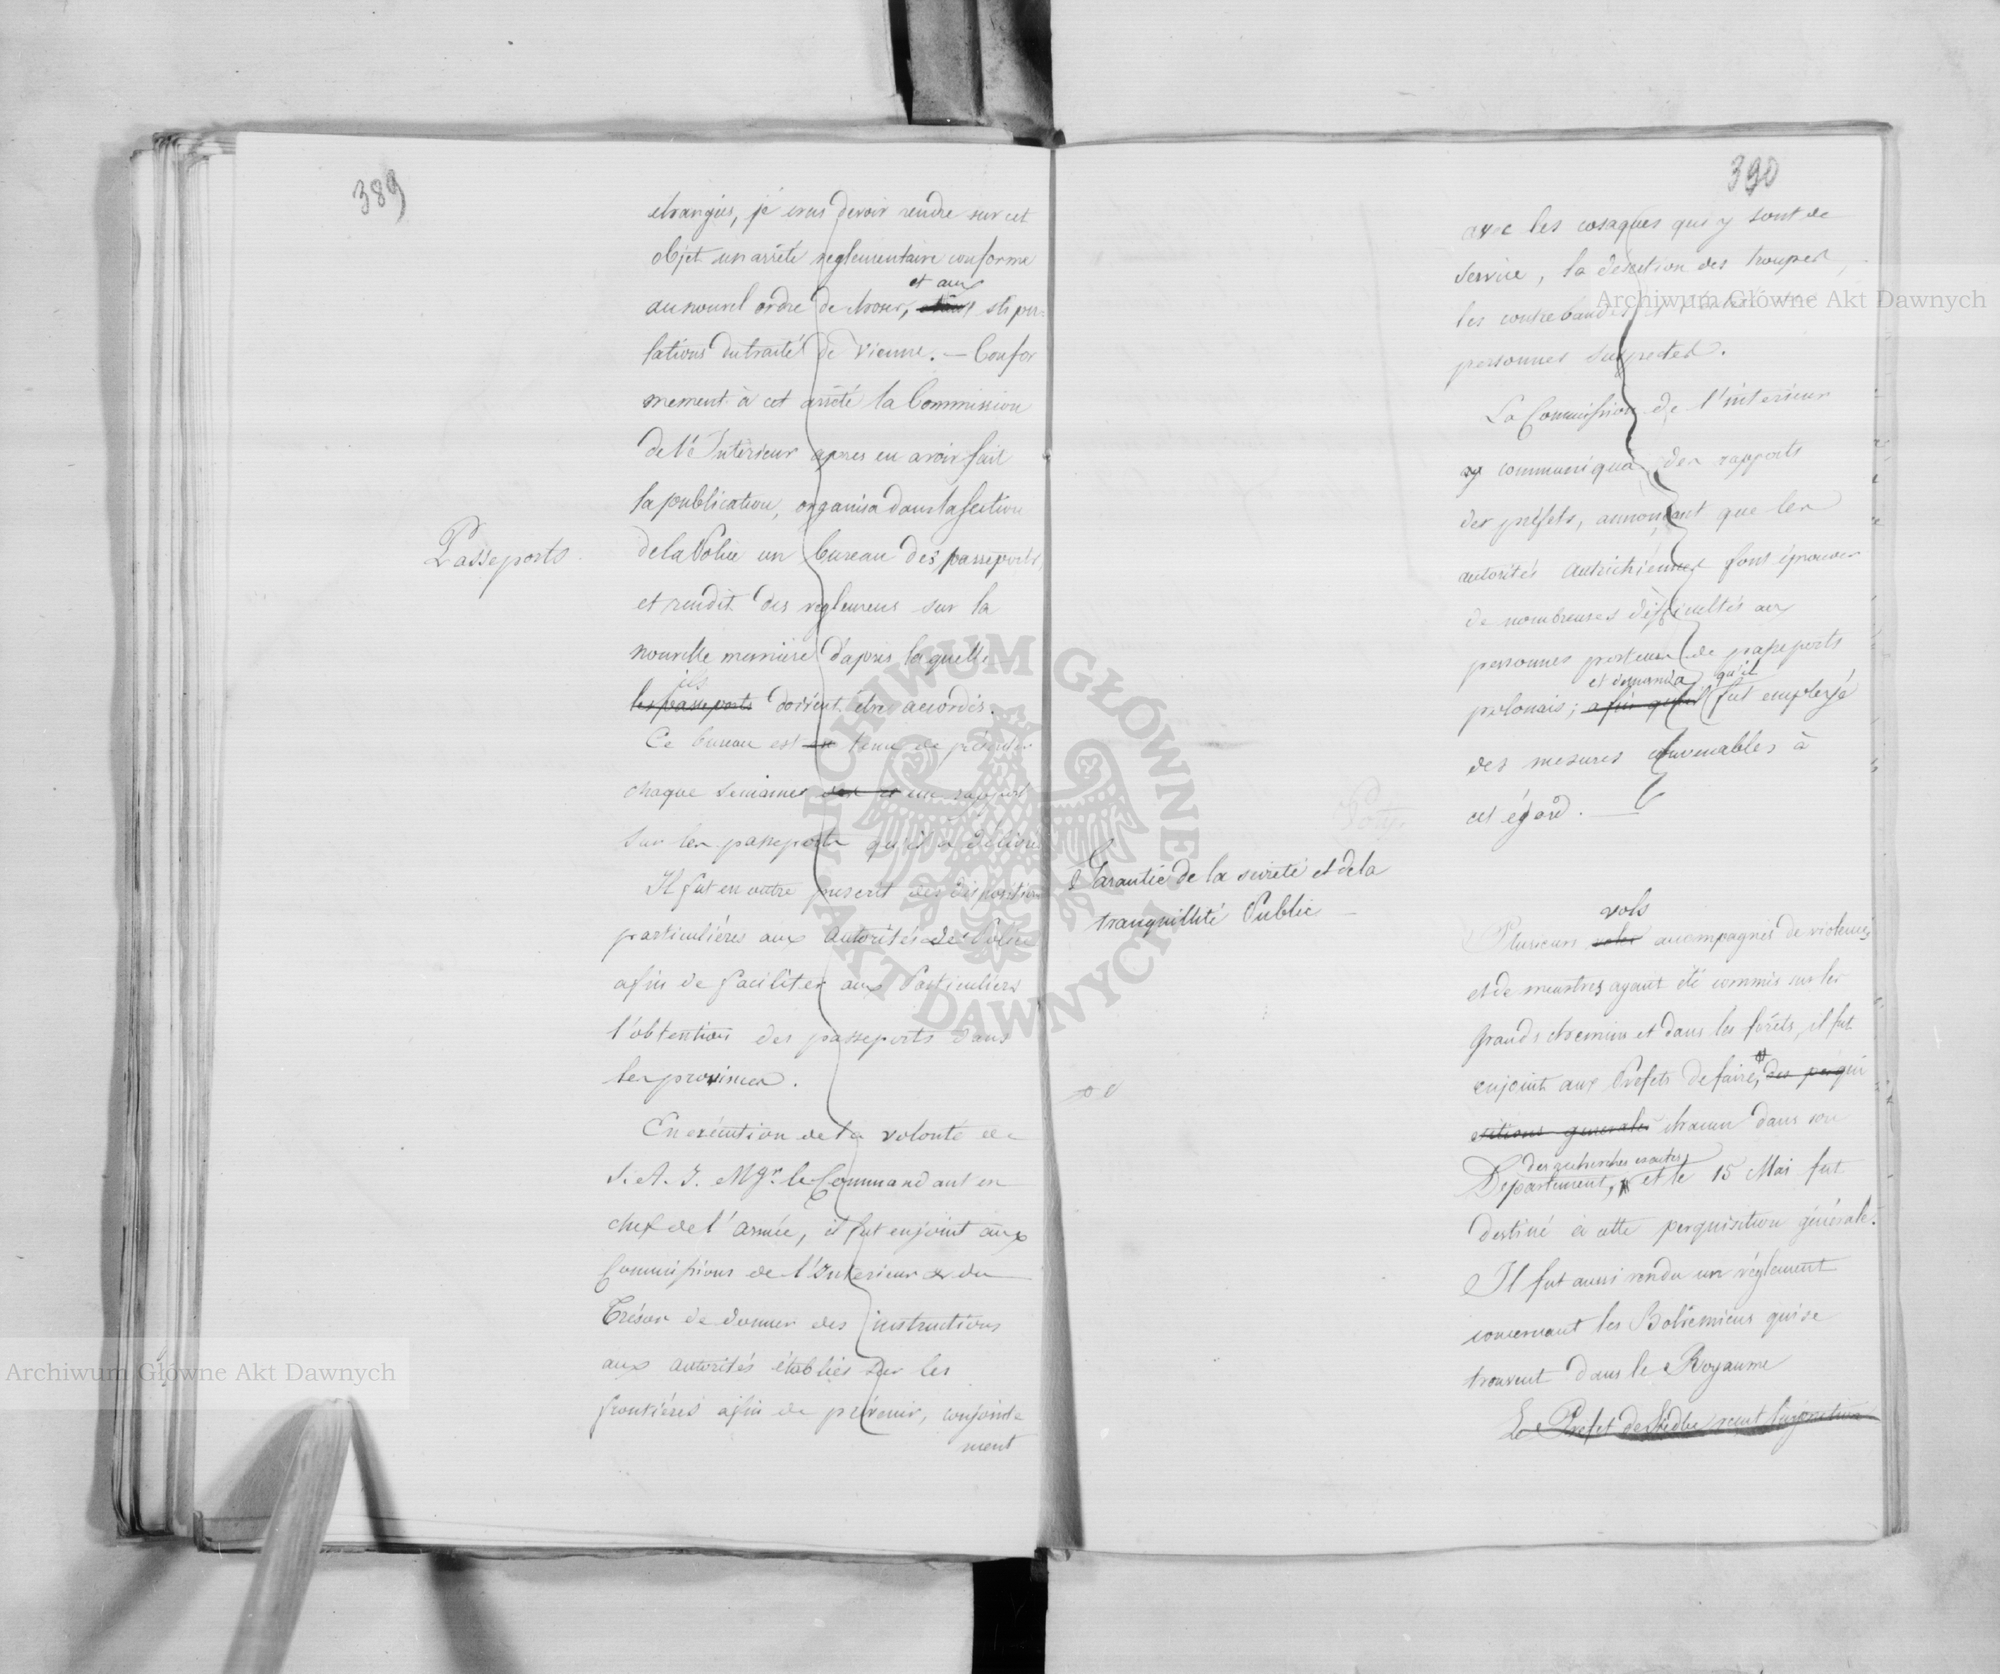 389
etrangers, je crus devoir rendre sur cet
objet un arrêté reglementaire conforme
et aux
au nouvel ordre de choses, stipu-
lations du traité de Vienne. — Confor
mement à cet arrêté la Commission
de l'Intérieur apres en avoir fait
la publication, organisa dans la section
Passeports
de la Police un bureau des passeports,
et rendit des reglemens sur la
nouvelle manniere d'apres laquelle
ils
les passeports doivent être accordés.
Ce bureau est tenu de présenter
chaque semaines un rapport
sur les passeports qu'il a délivré
Il fut en outre prescrit des disposition
particulières aux Autorités de Police
afin de faciliter aux Particuliers
l'obtention des passeports dans
les provinces.
En exécution de la volonté de
S. A. I. Mgr. le Commandant en
chef de l'armée, il fut enjoint aux
Commissions de l'Interieur & du
Trésor de donner des instructions
aux autorités établies sur les
frontières afin de prévenir, conjointe
ment
390
avec les cosaques qui y sont de
service, la desertion des troupes,
les contrebandes
personnes suspectes.
La Commission de l'intérieur
y communiqua des rapports
des préfets, annonçant que les
autorités Autrichiennes font éprouver
de nombreuses difficultés aux
personnes porteur de passeports
et demanda qu'il
polonais; afin qu'il fut employé
des mesures convenables à
cet égard. —
Garantie de la sureté et de la
tranquillité Public —
vols
Plusieurs accompagnés de violences
et de meurtres ayant été commis sur les
grands chemins et dans les forêts, il fut
enjoint aux Préfets de faire, des perqui
sitions generales chacun dans son
des recherches exactes
Departement, et le 15 Mai fut
destiné à cette perquisition générale.
Il fut aussi rendu un réglement
concernant les Bohémiens qui se
trouvent dans le Royaume
Le Préfet de Siedlce recut l'injonction
Archiwum Główne Akt Dawnych
Archiwum Główne Akt Dawnych
ARCHIWUM GŁÓWNE AKT DAWNYCH